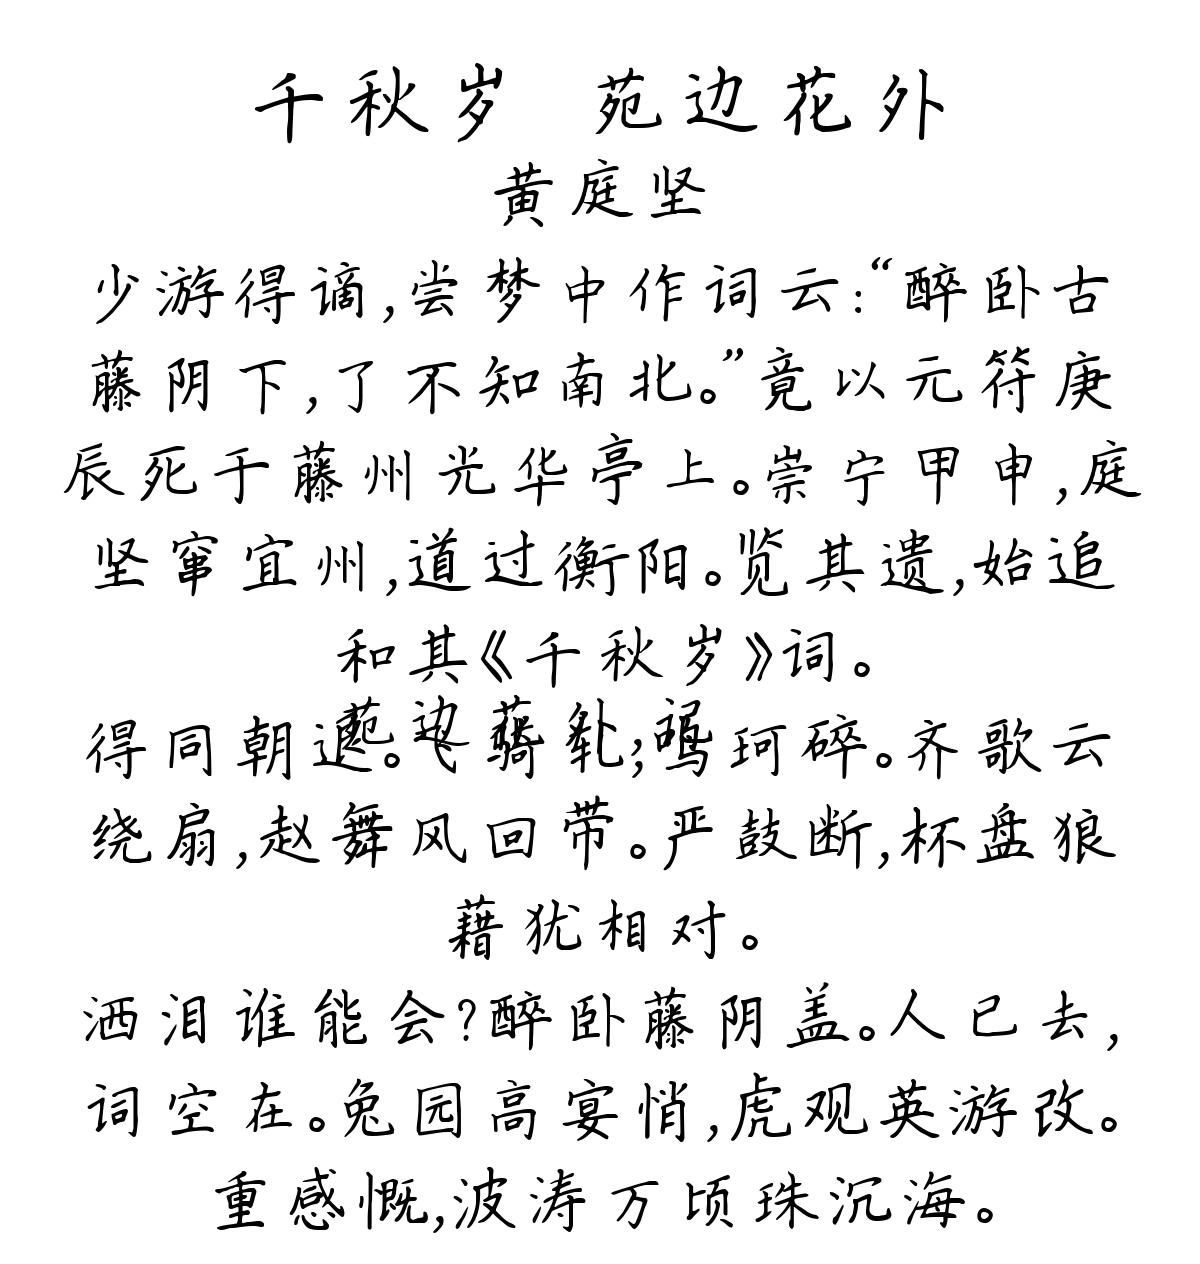 千秋岁 苑边花外
黄庭坚
少游得谪,尝梦中作词云:“醉卧古
藤阴下,了不知南北。”竟以元符庚
辰死于藤州光华亭上。崇宁甲申,庭
坚窜宜州,道过衡阳。览其遗,始追
和其《千秋岁》词。
苑边花外,记
得同朝退。飞骑轧,鸣珂碎。齐歌云
绕扇,赵舞风回带。严鼓断,杯盘狼
藉犹相对。
洒泪谁能会?醉卧藤阴盖。人已去,
词空在。兔园高宴悄,虎观英游改。
重感慨,波涛万顷珠沉海。